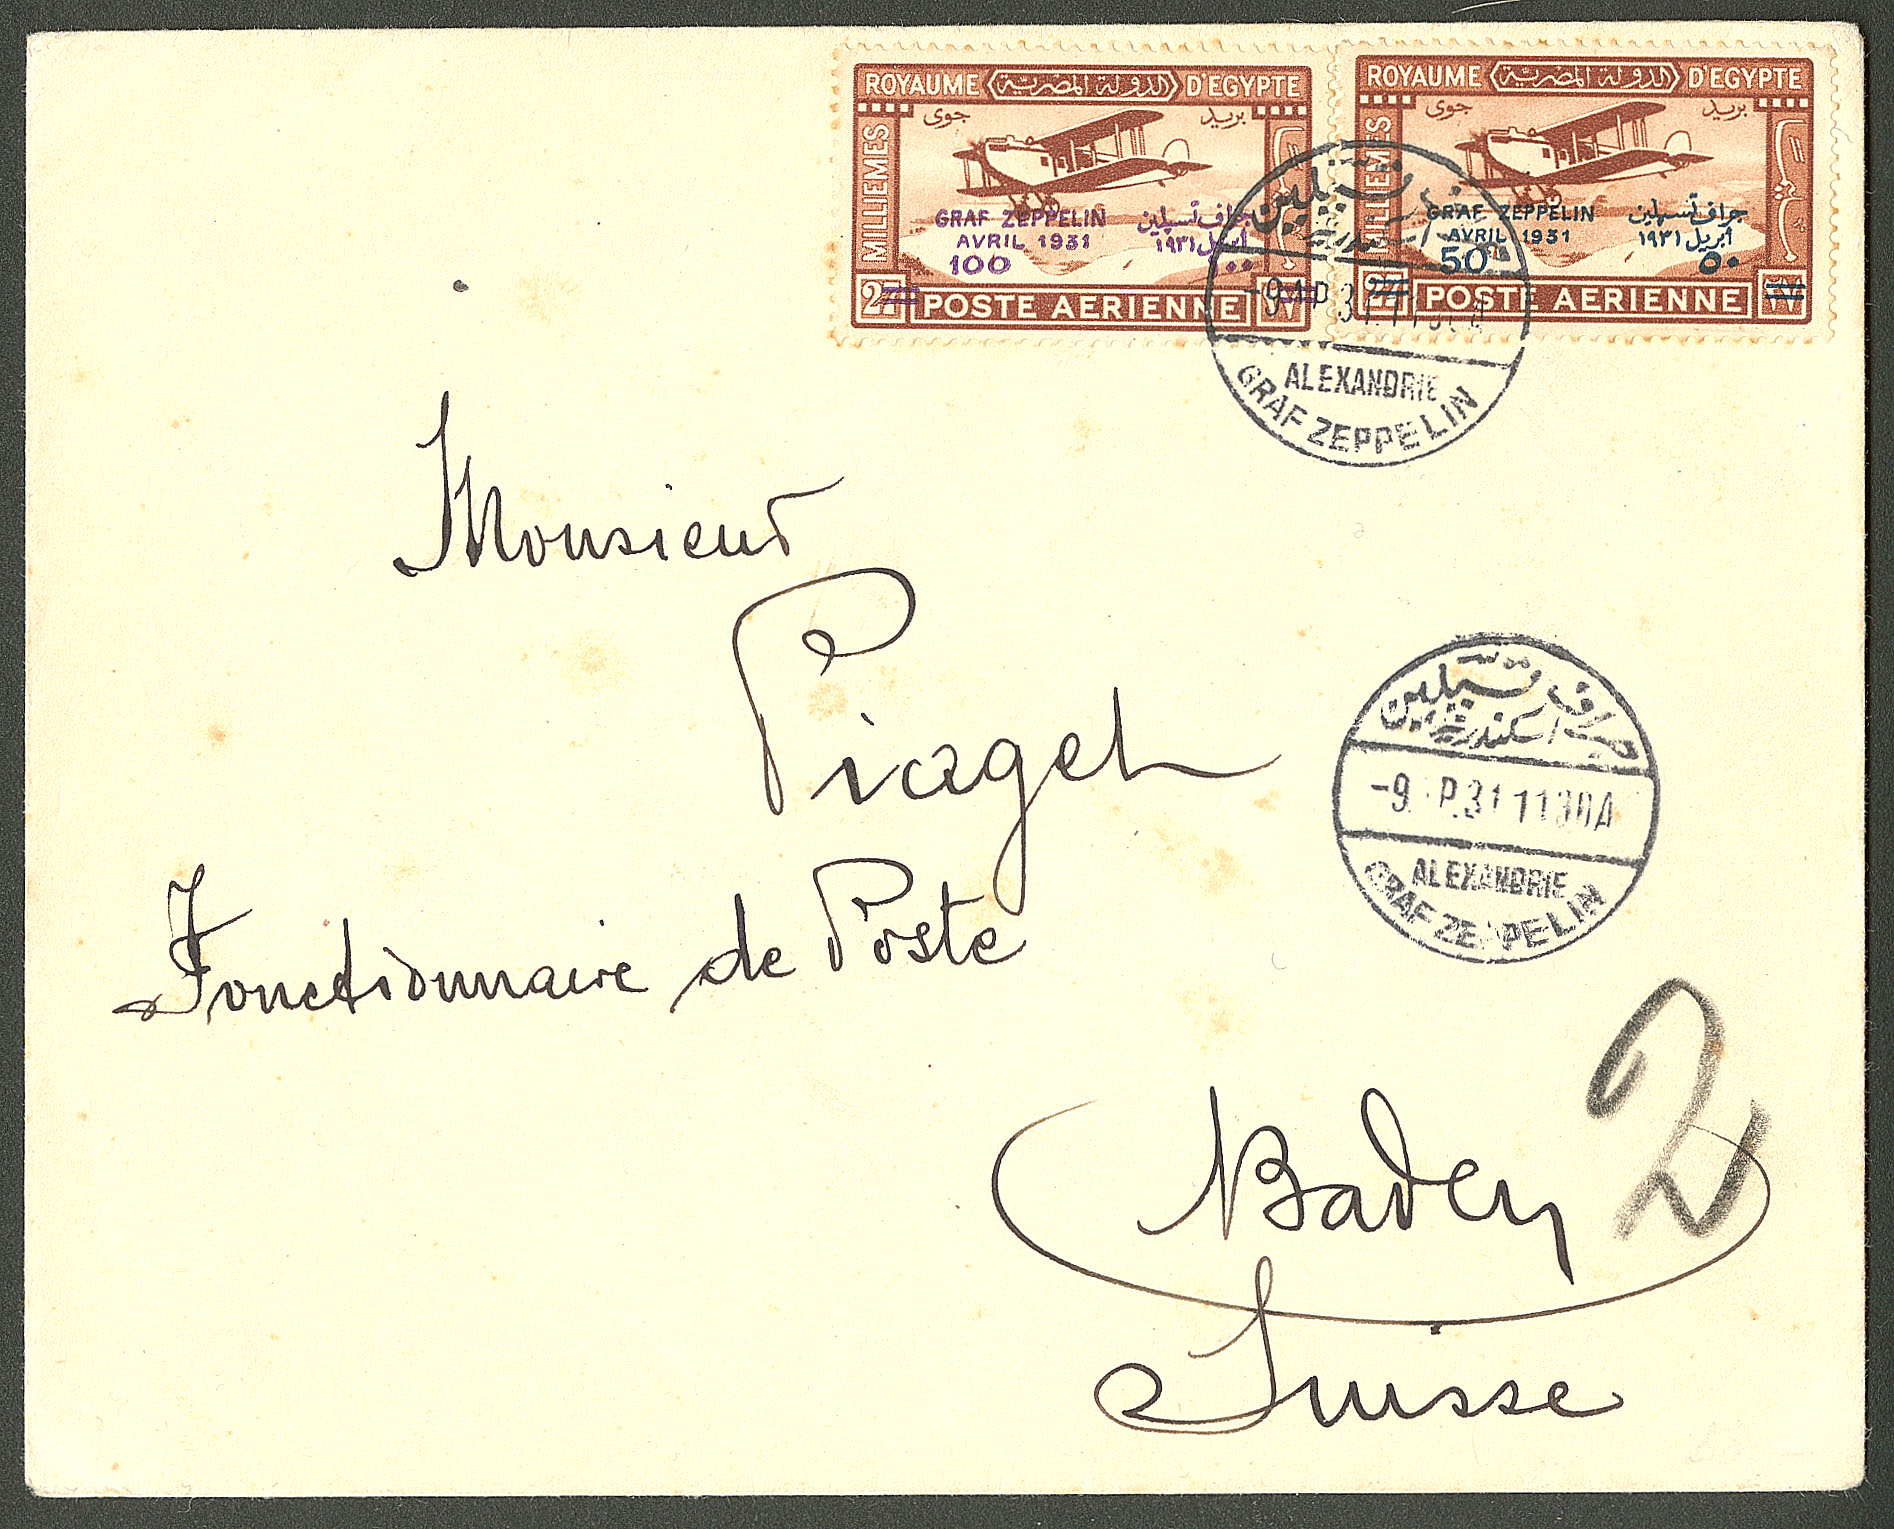 ROYAUME الدولة المصرية D'EGYPTE
بريد جوى
MILLIEMES
GRAF ZEPPELIN جراف تسپلين
AVRIL 1931 أبريل ١٩٣١
100 ١٠٠
27 POSTE AERIENNE ٢٧
ROYAUME الدولة المصرية D'EGYPTE
بريد جوى
MILLIEMES
GRAF ZEPPELIN جراف تسپلين
AVRIL 1931 أبريل ١٩٣١
50 ٥٠
27 POSTE AERIENNE ٢٧
-9 AP 31 1130A
ALEXANDRIE
GRAF ZEPPELIN
Monsieur
Piaget
Fonctionnaire de Poste
Baden
Suisse
جراف تسپلين
اسكندرية
-9 P.31 1130A
ALEXANDRIE
GRAF ZEPPELIN
2